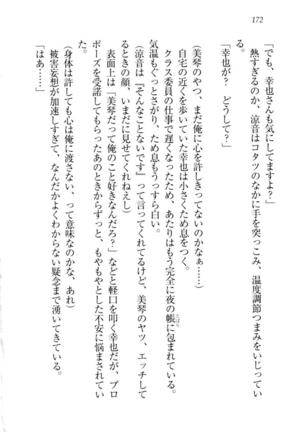 172
「でも、幸也さんも気にしてますよ?」
熱すぎるのか、涼音はコタツのなかに手を突っこみ、温度調節つまみをいじってい
る。
「幸也が? どうして?」
(美琴のやつ、まだ俺に心を許しきってないのかなぁ……)
自宅の近くを歩いていた幸也は小さくため息をつく。
クラス委員の仕事で遅くなったため、あたりはもう完全に夜の帳に包まれている。
気温もぐっとさがり、ため息もうっすら白い。
(涼音は『そんなことないです』って言ってくれてるけど、美琴のヤツ、エッチして
るときの顔、いまだに見せてくれねえし)
表面上は「美琴だって俺のこと好きなんだろ?」などと軽口を叩く幸也だが、プロ
ポーズを受諾してもらったあのときからずっと、もやもやとした不安に悩まされてい
た。
(身体は許しても心は俺に渡さない、って意味なのかな、あれ)
被害妄想が加速しすぎて、なんだかよくわからない疑念まで湧いてきている。
「はあ……」